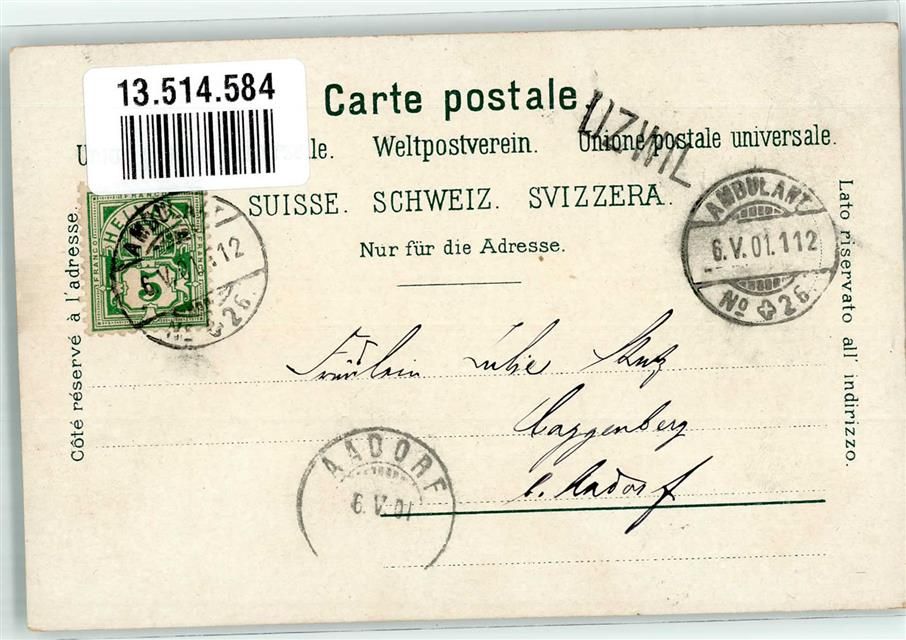 13.514.584
Carte postale
UZWIL
le. Weltpostverein. Unione postale universale.
SUISSE. SCHWEIZ. SVIZZERA.
Nur für die Adresse.
Côté réservé à l'adresse.
Lato riservato all' indirizzo.
FRANCO
HELVETIA
FRANCO FRANCO
5
AMBULANT
6.V.01.112
No 26
AMBULANT
6.V.01.112
No 26
Fräulein Lulie
Haggenberg
b. Aadorf
AADORF
6.V.01